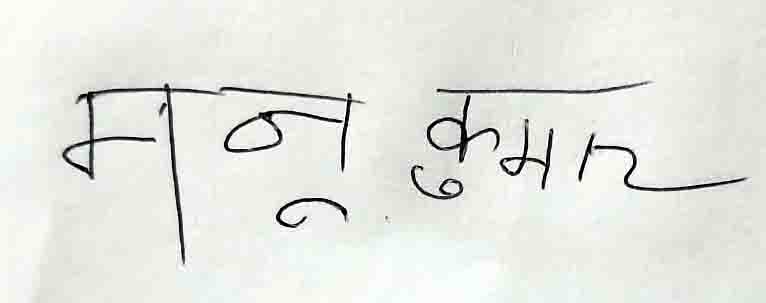 मनू कुमार